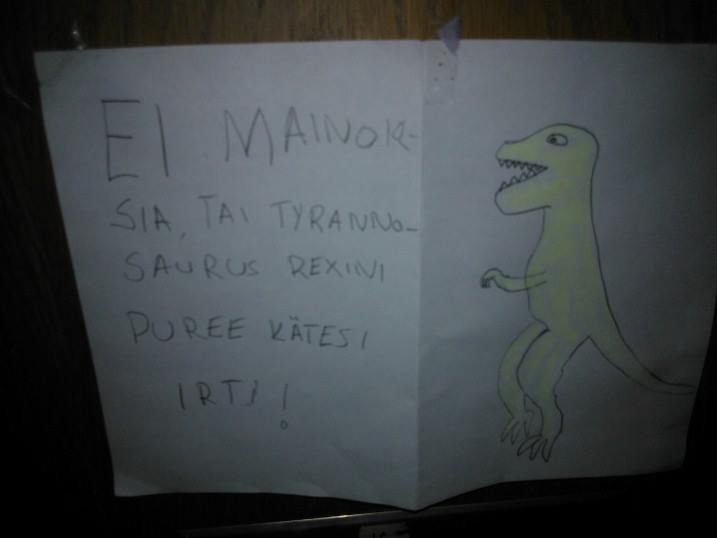 EI MAINOK-
SIA, TAI TYRANNO-
SAURUS REXINI
PUREE KÄTESI
IRTI!